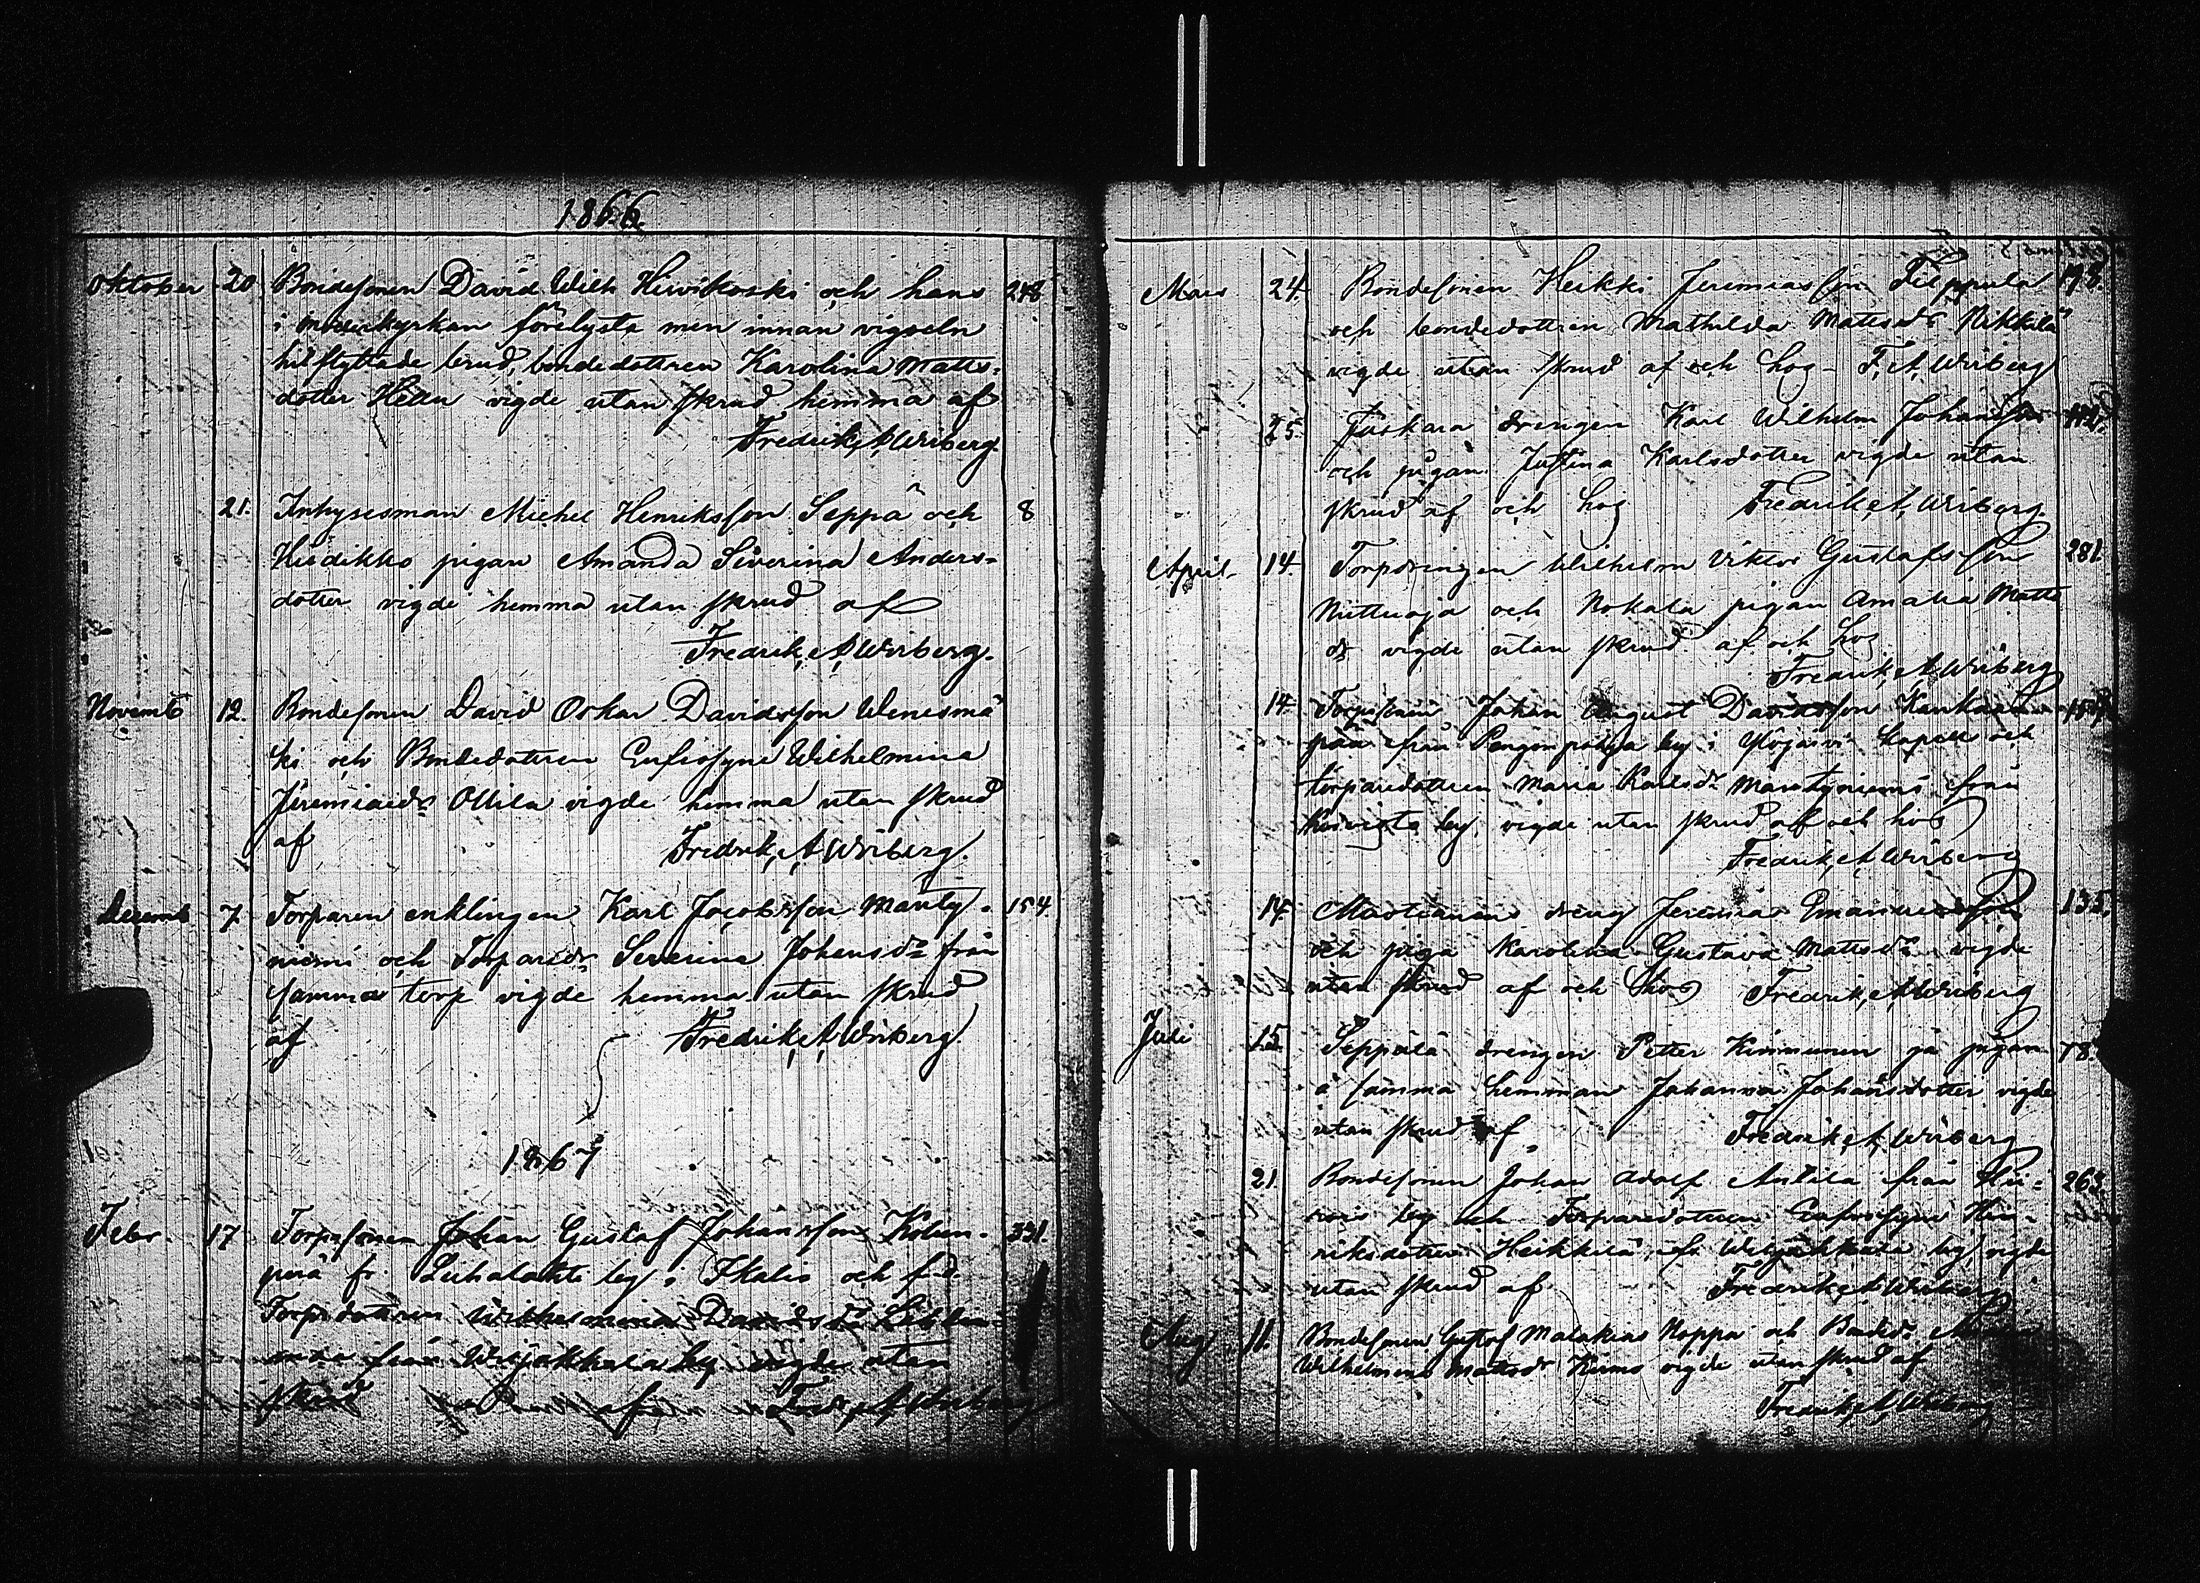 1866
Oktober 20 Bondesonen David Wilh Hirvikoski och hans 248
i moderkyrkan förelysta men innan vigseln
hitflyttade brud, bondedottren Karolina Matts-
dotter Heiu vigde utan skrud hemma af
Fredrik, A, Wriberg.
21. Inhysesman Michel Henriksson Seppä och 8
pigan Amanda Severina Anders-
dotter vigde hemma utan skrud af
Fredrik, A, Wriberg.
Novemb 12. Bondesonen David Oskar Davidsson Wenesmä
ki och Bondedottren Eufrosyne Wilhelmina
Jeremiaedr Ollila vigde hemma utan skrud
af Fredrik, A Wriberg.
Decemb 7. Torparen enklingen Karl Jacobsson Mänty- 154
niemi och Torparedr Severina Johansdr från
samma torp vigde hemma utan skrud
af Fredrik, A, Wriberg.
1867
Febr. 17 Torpsonen Johan Gustaf Johansson Kolun- 331.
perä fr. by i Ikalis och
Torpdottren Wilhelmina Davidsdr
från Wiljakkala by vigde utan
skrud af Fred, A, Wriberg
Mars 24. Bondesonen Heikki Jeremiasson 198.
och bondedottren Mathilda Mattsdr Rikkilä
vigde utan skrud af och hos F, A, Wriberg
25. drengen Karl Wilhelm Johansson
och pigan Justina Karlsdotter vigde utan
skrud af och hos Fredrik, A, Wriberg.
April 14. Torpdrengen Wilhelm Viktor Gustafsson 281.
och Kokala pigan Amalia Matts
dr vigde utan skrud af och hos
Fredrik, A, Wriberg
14. Torpsonen Johan August Davidsson
från Pengonpohja by i Ylöjärvi kapell och
torparedottren Maria Karlsdr Mäntyniemi från
by vigde utan skrud af och hos
Fredrik, A, Wriberg
14. dreng Jeremias Emanuelsson 135.
och piga Karolina Gustava Mattsdr vigde
utan skrud af och hos Fredrik, A, Wriberg
Juli 15. Seppälä drengen Petter Kinnunen ja pigan 78.
å samma hemman Johanna Johansdotter vigde
utan skrud af Fredrik, A, Wriberg
21. Bondesonen Johan Adolf Anttila från 263.
by och Torparedottren Eufrosyne Hen-
riksdotter Heikkilä fr. Wiljakkala by vigde
utan skrud af Fredrik, A, Wriberg
Aug 11. Bondesonen Gustaf Malakias Koppa och Bondedr
Wilhelmina Mattsdr vigde utan skrud af
Fredrik, A, Wriberg